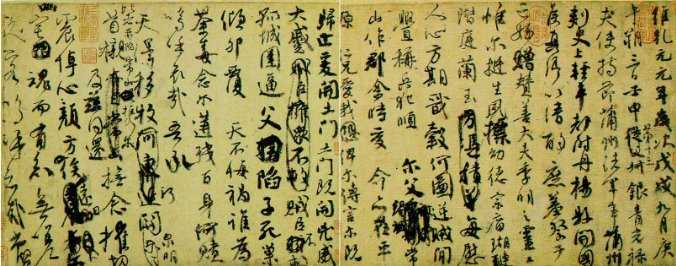 維乾元元年歲次戊戌九月庚
午朔三日壬申第十三叔銀青光祿
夫使持節蒲州諸軍事蒲州
刺史上輕車都尉丹陽縣開國
侯真卿以清酌庶羞祭于
亡姪贈贊善大夫季明之靈曰
惟爾挺生夙標幼德宗廟瑚璉
階庭蘭玉每慰
人心方期戩穀何圖逆賊間
釁稱兵犯順爾父竭誠常
山作郡余時受命亦在平
原仁兄愛我俾爾傳言爾既
歸止爰開土門土門既開凶威
大蹙賊臣不救
孤城圍逼父陷子死巢
傾卵覆天不悔禍誰為
荼毒念爾遘殘百身何贖
嗚呼哀哉吾承
天澤移牧河關泉明
比者再陷常山攜爾
首櫬及茲同還撫念摧切
震悼心顏方俟遠日
魂而有知無嗟
久客嗚呼哀哉尚饗